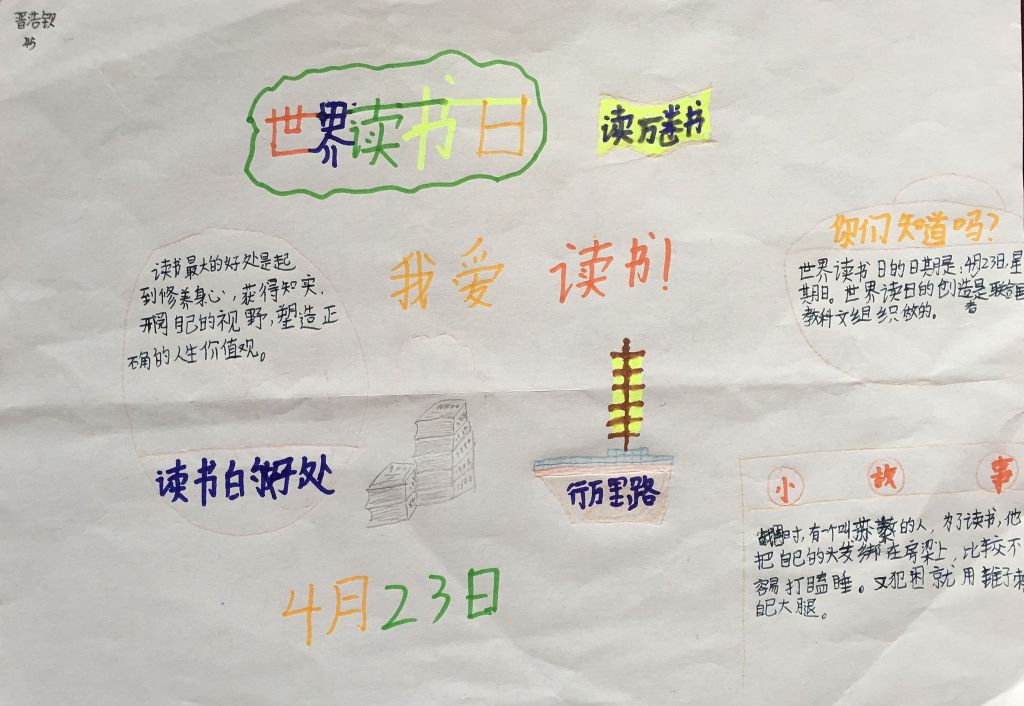 晋浩钦
45
世界读书日
读万卷书
你们知道吗？
世界读书日的日期是：4月23日，星
期日。世界读日的创造是联合国
者
教科文组织做的。
我爱读书！
读书最大的好处是起
到修养身心，获得知实，
开阔自己的视野，塑造正
确的人生价值观。
读书的好处
行万里路
小故事
时，有一个叫苏秦的人，为了读书，他
把自己的头发绑在房梁上，比较不
容易打瞌睡。又犯困就用锥子刺
自己大腿。
4月23日